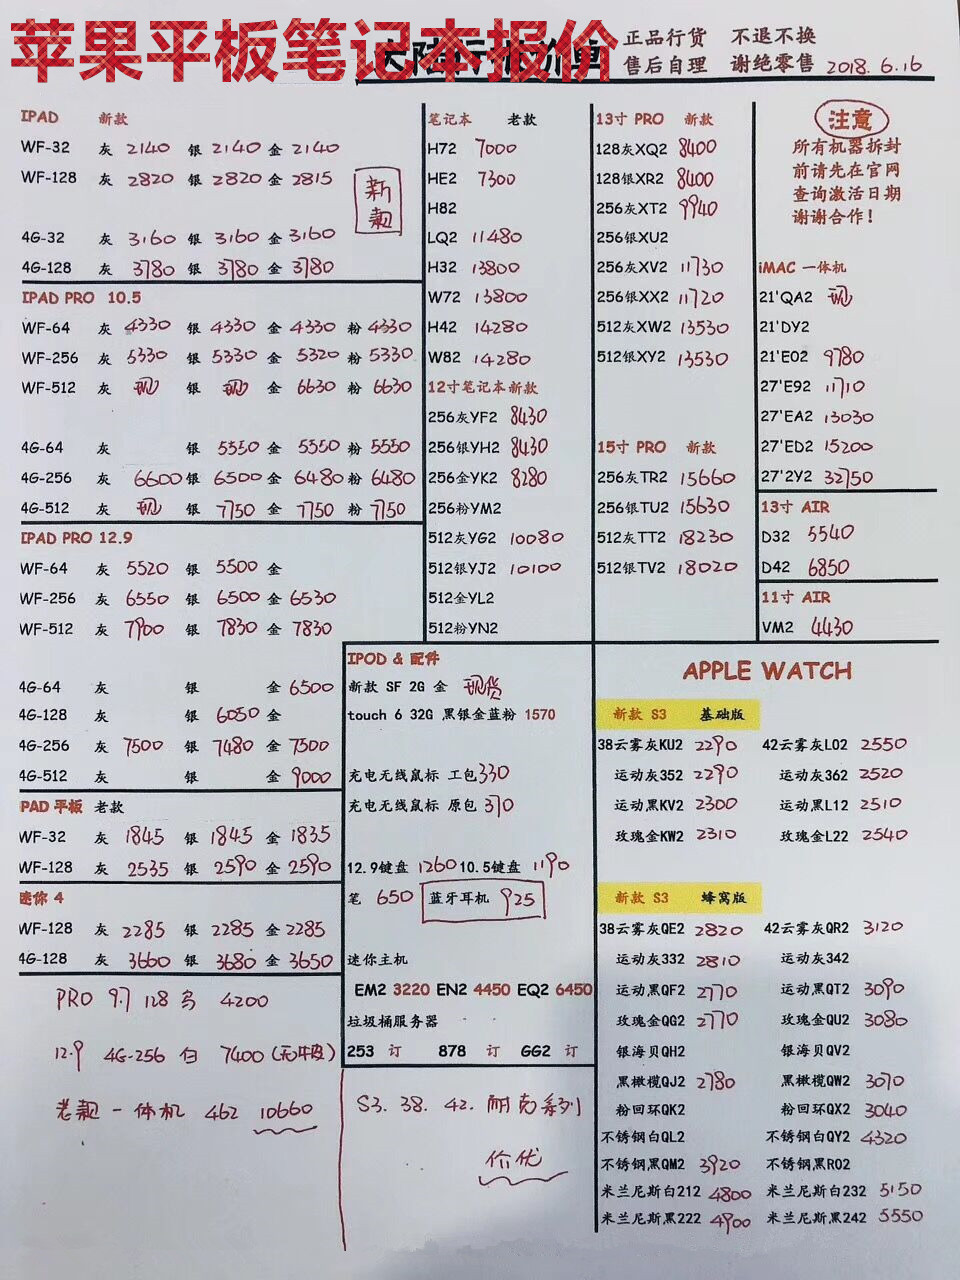 苹果平板笔记本报价
大陆行报价单
正品行货 不退不换
售后自理 谢绝零售 2018.6.16
IPAD 新款
WF-32 灰 2140 银 2140 金 2140
WF-128 灰 2820 银 2820 金 2815
新款
4G-32 灰 3160 银 3160 金 3160
4G-128 灰 3780 银 3780 金 3780
IPAD PRO 10.5
WF-64 灰 4330 银 4330 金 4330 粉 4330
WF-256 灰 5330 银 5330 金 5320 粉 5330
WF-512 灰 现 银 现 金 6630 粉 6630
4G-64 灰 银 5550 金 5550 粉 5550
4G-256 灰 6600 银 6500 金 6480 粉 6480
4G-512 灰 现 银 7750 金 7750 粉 7750
IPAD PRO 12.9
WF-64 灰 5520 银 5500 金
WF-256 灰 6550 银 6500 金 6530
WF-512 灰 7900 银 7830 金 7830
4G-64 灰 银 金 6500
4G-128 灰 银 6050 金
4G-256 灰 7500 银 7480 金 7500
4G-512 灰 银 金 9000
PAD 平板 老款
WF-32 灰 1845 银 1845 金 1835
WF-128 灰 2535 银 2590 金 2590
迷你 4
WF-128 灰 2285 银 2285 金 2285
4G-128 灰 3660 银 3680 金 3650
PRO 9.7 128 4200
12.9 4G-256 白 7400
老款一体机 462 10660
笔记本 老款
H72 7000
HE2 7300
H82
LQ2 11480
H32 13800
W72 13800
H42 14280
W82 14280
12寸笔记本新款
256灰YF2 8430
256银YH2 8430
256金YK2 8280
256粉YM2
512灰YG2 10080
512银YJ2 10100
512金YL2
512粉YN2
13寸 PRO 新款
128灰XQ2 8400
128银XR2 8400
256灰XT2 9940
256银XU2
256灰XV2 11730
256银XX2 11720
512灰XW2 13530
512银XY2 13530
15寸 PRO 新款
256灰TR2 15660
256银TU2 15630
512灰TT2 18230
512银TV2 18020
注意
所有机器拆封
前请先在官网
查询激活日期
谢谢合作!
iMAC 一体机
21'QA2 现
21'DY2
21'E02 9780
27'E92 11710
27'EA2 13030
27'ED2 15200
27'2Y2 32750
13寸 AIR
D32 5540
D42 6850
11寸 AIR
VM2 4430
IPOD & 配件
新款 SF 2G 金 现货
touch 6 32G 黑银金蓝粉 1570
充电无线鼠标 工包 330
充电无线鼠标 原包 370
12.9键盘 1260 10.5键盘 1190
笔 650 蓝牙耳机 925
迷你主机
EM2 3220 EN2 4450 EQ2 6450
垃圾桶服务器
253 订 878 订 GG2 订
S3. 38. 42. 耐克系列
价优
APPLE WATCH
新款 S3 基础版
38云雾灰KU2 2290 42云雾灰L02 2550
运动灰352 2290 运动灰362 2520
运动黑KV2 2300 运动黑L12 2510
玫瑰金KW2 2310 玫瑰金L22 2540
新款 S3 蜂窝版
38云雾灰QE2 2820 42云雾灰QR2 3120
运动灰332 2810 运动灰342
运动黑QF2 2770 运动黑QT2 3090
玫瑰金QG2 2770 玫瑰金QU2 3080
银海贝QH2 银海贝QV2
黑橄榄QJ2 2780 黑橄榄QW2 3070
粉回环QK2 粉回环QX2 3040
不锈钢白QL2 不锈钢白QY2 4320
不锈钢黑QM2 3920 不锈钢黑R02
米兰尼斯白212 4800 米兰尼斯白232 5150
米兰尼斯黑222 4900 米兰尼斯黑242 5550